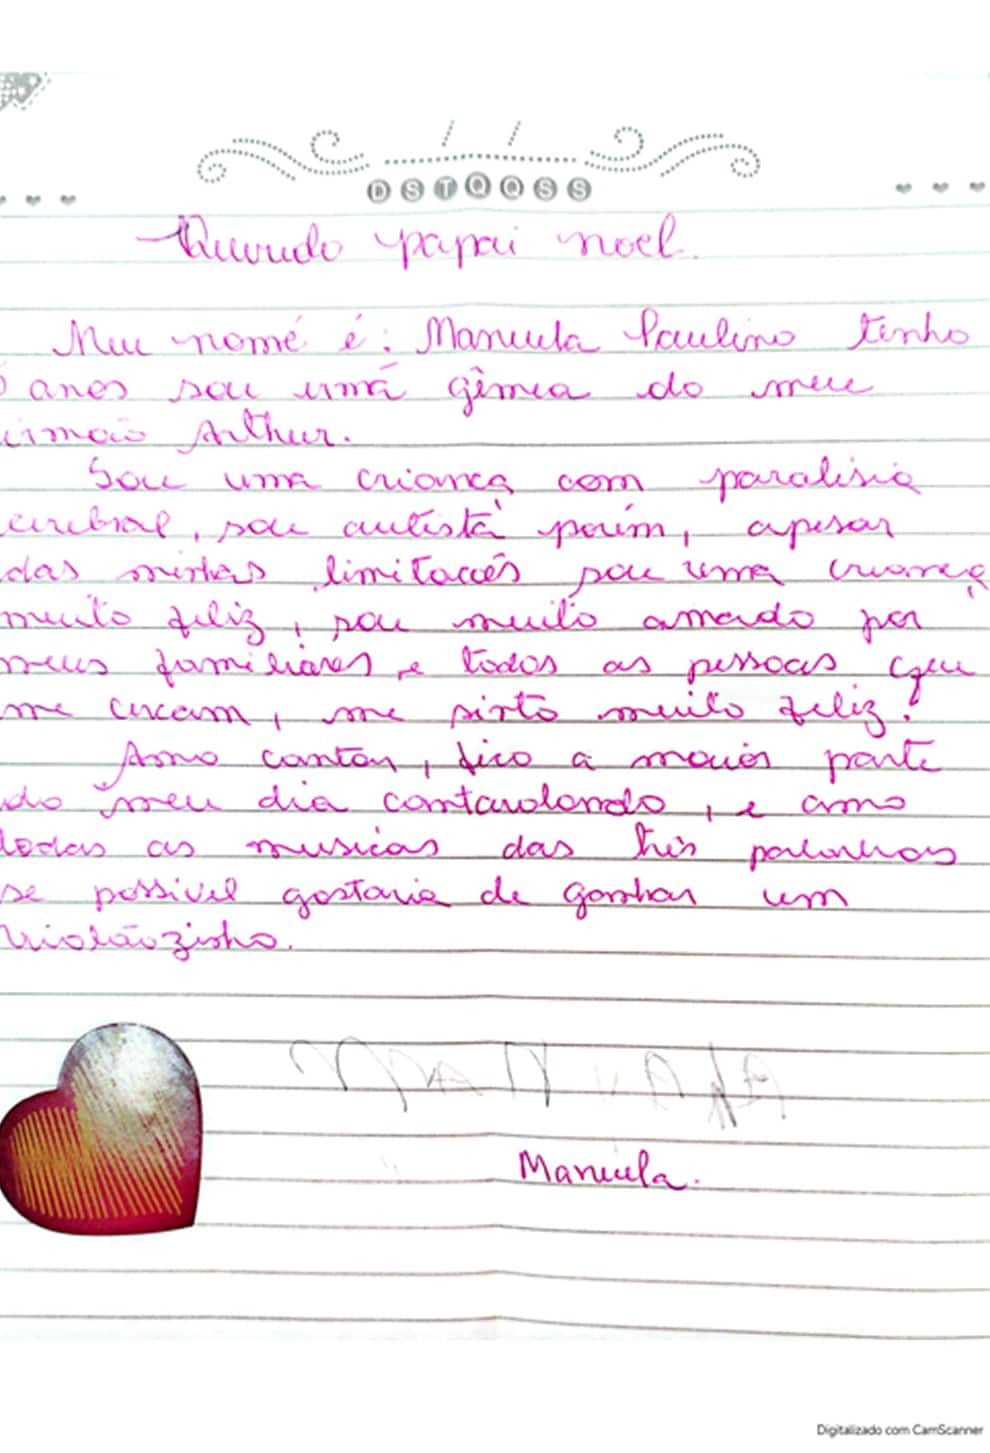 / /
D S T Q Q S S
Querido papai noel.
Meu nomé é: Manuela Paulino tenho
anos sou umá gêmea do meu
irmão Arthur.
Sou uma criança com paralisia
cerebral, sou autistá porém, apesar
das minhas limitações sou uma criança
muito feliz, sou muito amado por
meus familiares e todos as pessoas que
me cercam, me sinto muito feliz!
Amo cantar, fico a maior parte
do meu dia cantarolando, e amo
todas as musicas das três palavrhas
se possivel gostaria de ganhar um
violãozinho.
MANUELA
Manuela.
Digitalizado com CamScanner